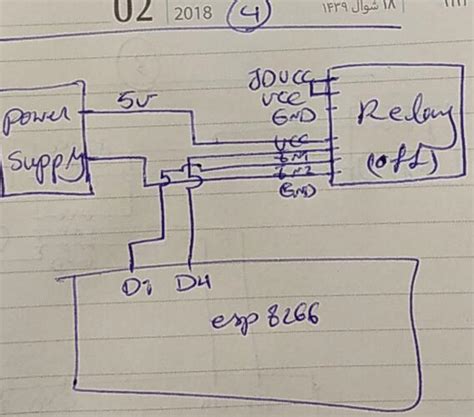 02
2018
4
١٨ شوال ١٤٣٩
5v
Power
Supply
JDVCC
VCC
GND
VCC
IN1
IN2
GND
Relay
(off)
D4
esp 8266